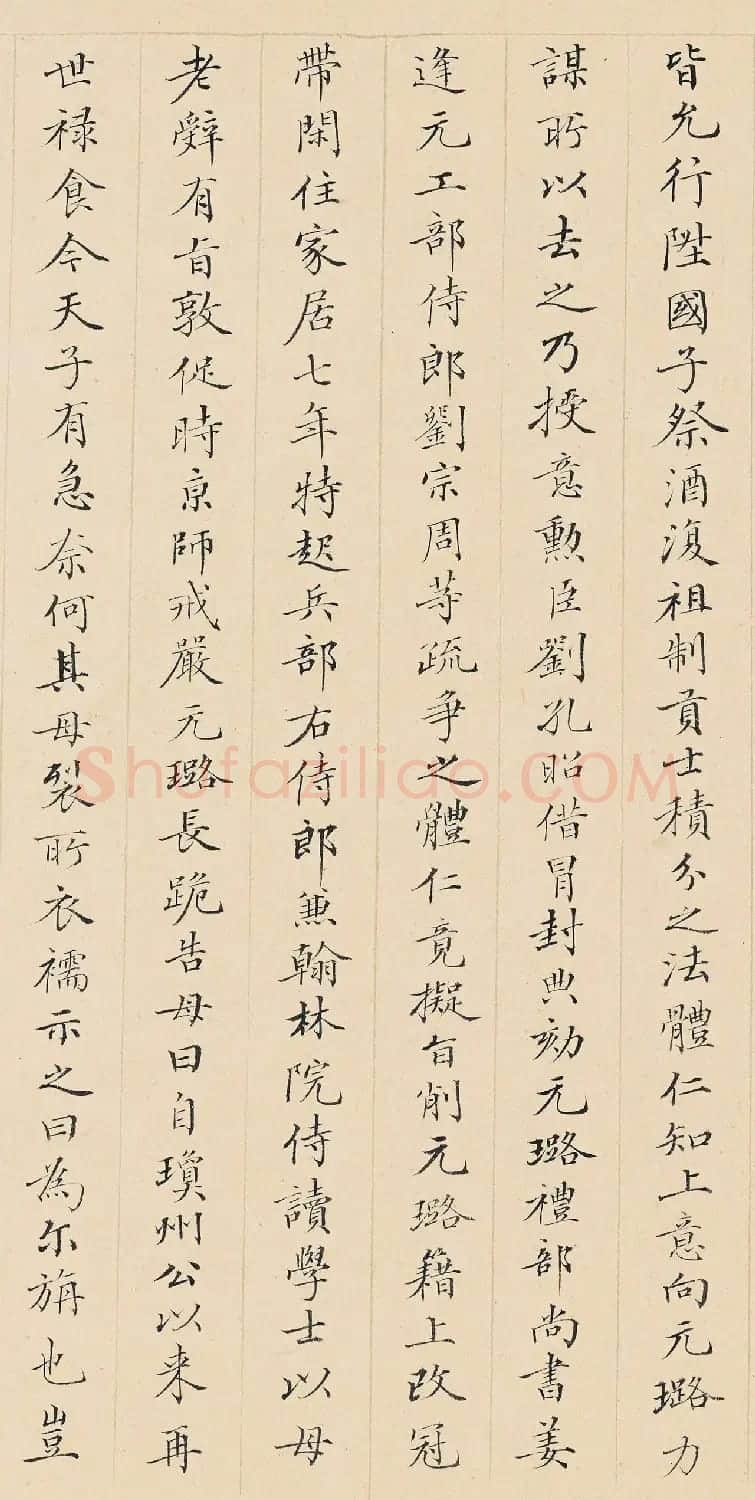 皆允行陞國子祭酒復祖制貢士積分之法體仁知上意向元璐力
謀所以去之乃授意勲臣劉孔昭借冒封典劾元璐禮部尚書姜
逢元工部侍郎劉宗周等疏爭之體仁竟擬旨削元璐籍上改冠
帶閑住家居七年特起兵部右侍郎兼翰林院侍讀學士以母
老辭有旨敦促時京師戒嚴元璐長跪告母曰自瓊州公以来再
世禄食今天子有急奈何其母裂所衣襦示之曰為尔旃也豈
Shufaziliao.COM